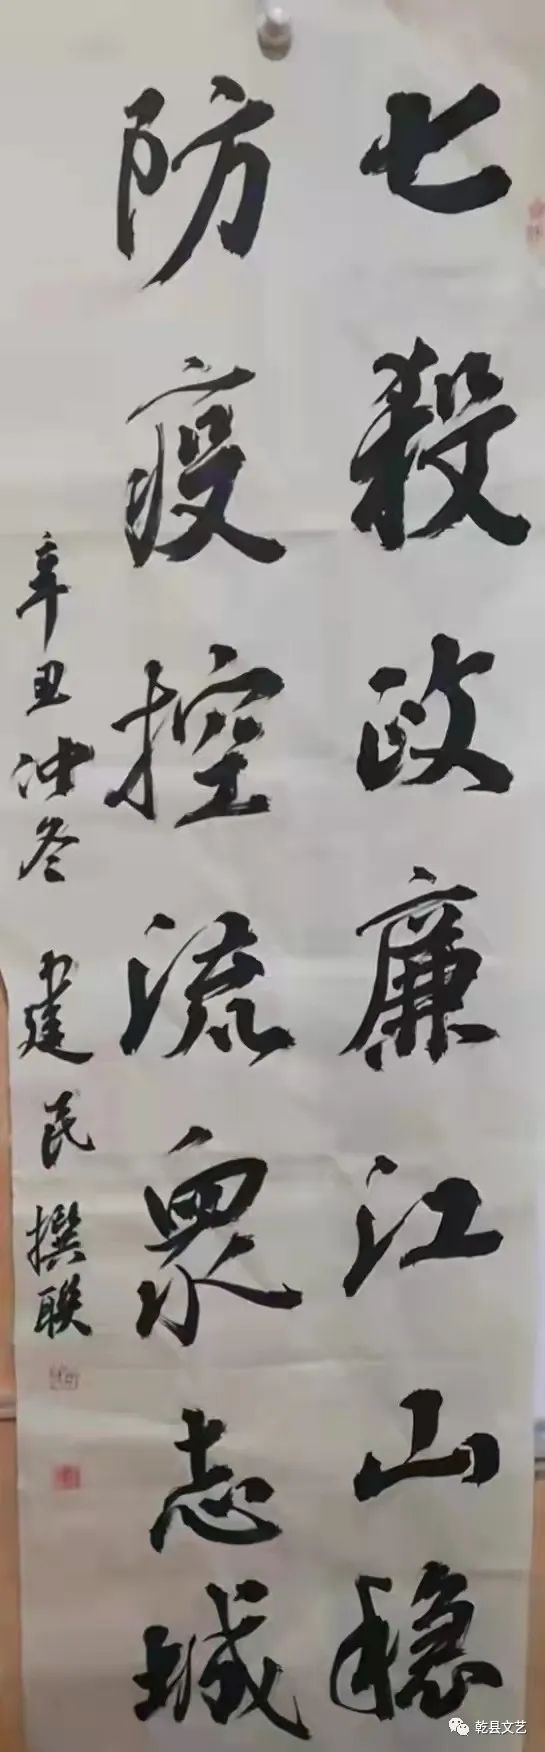 七殺政廉江山穏
防疫控流眾志城
辛丑冲冬 建民撰联
乾县文艺